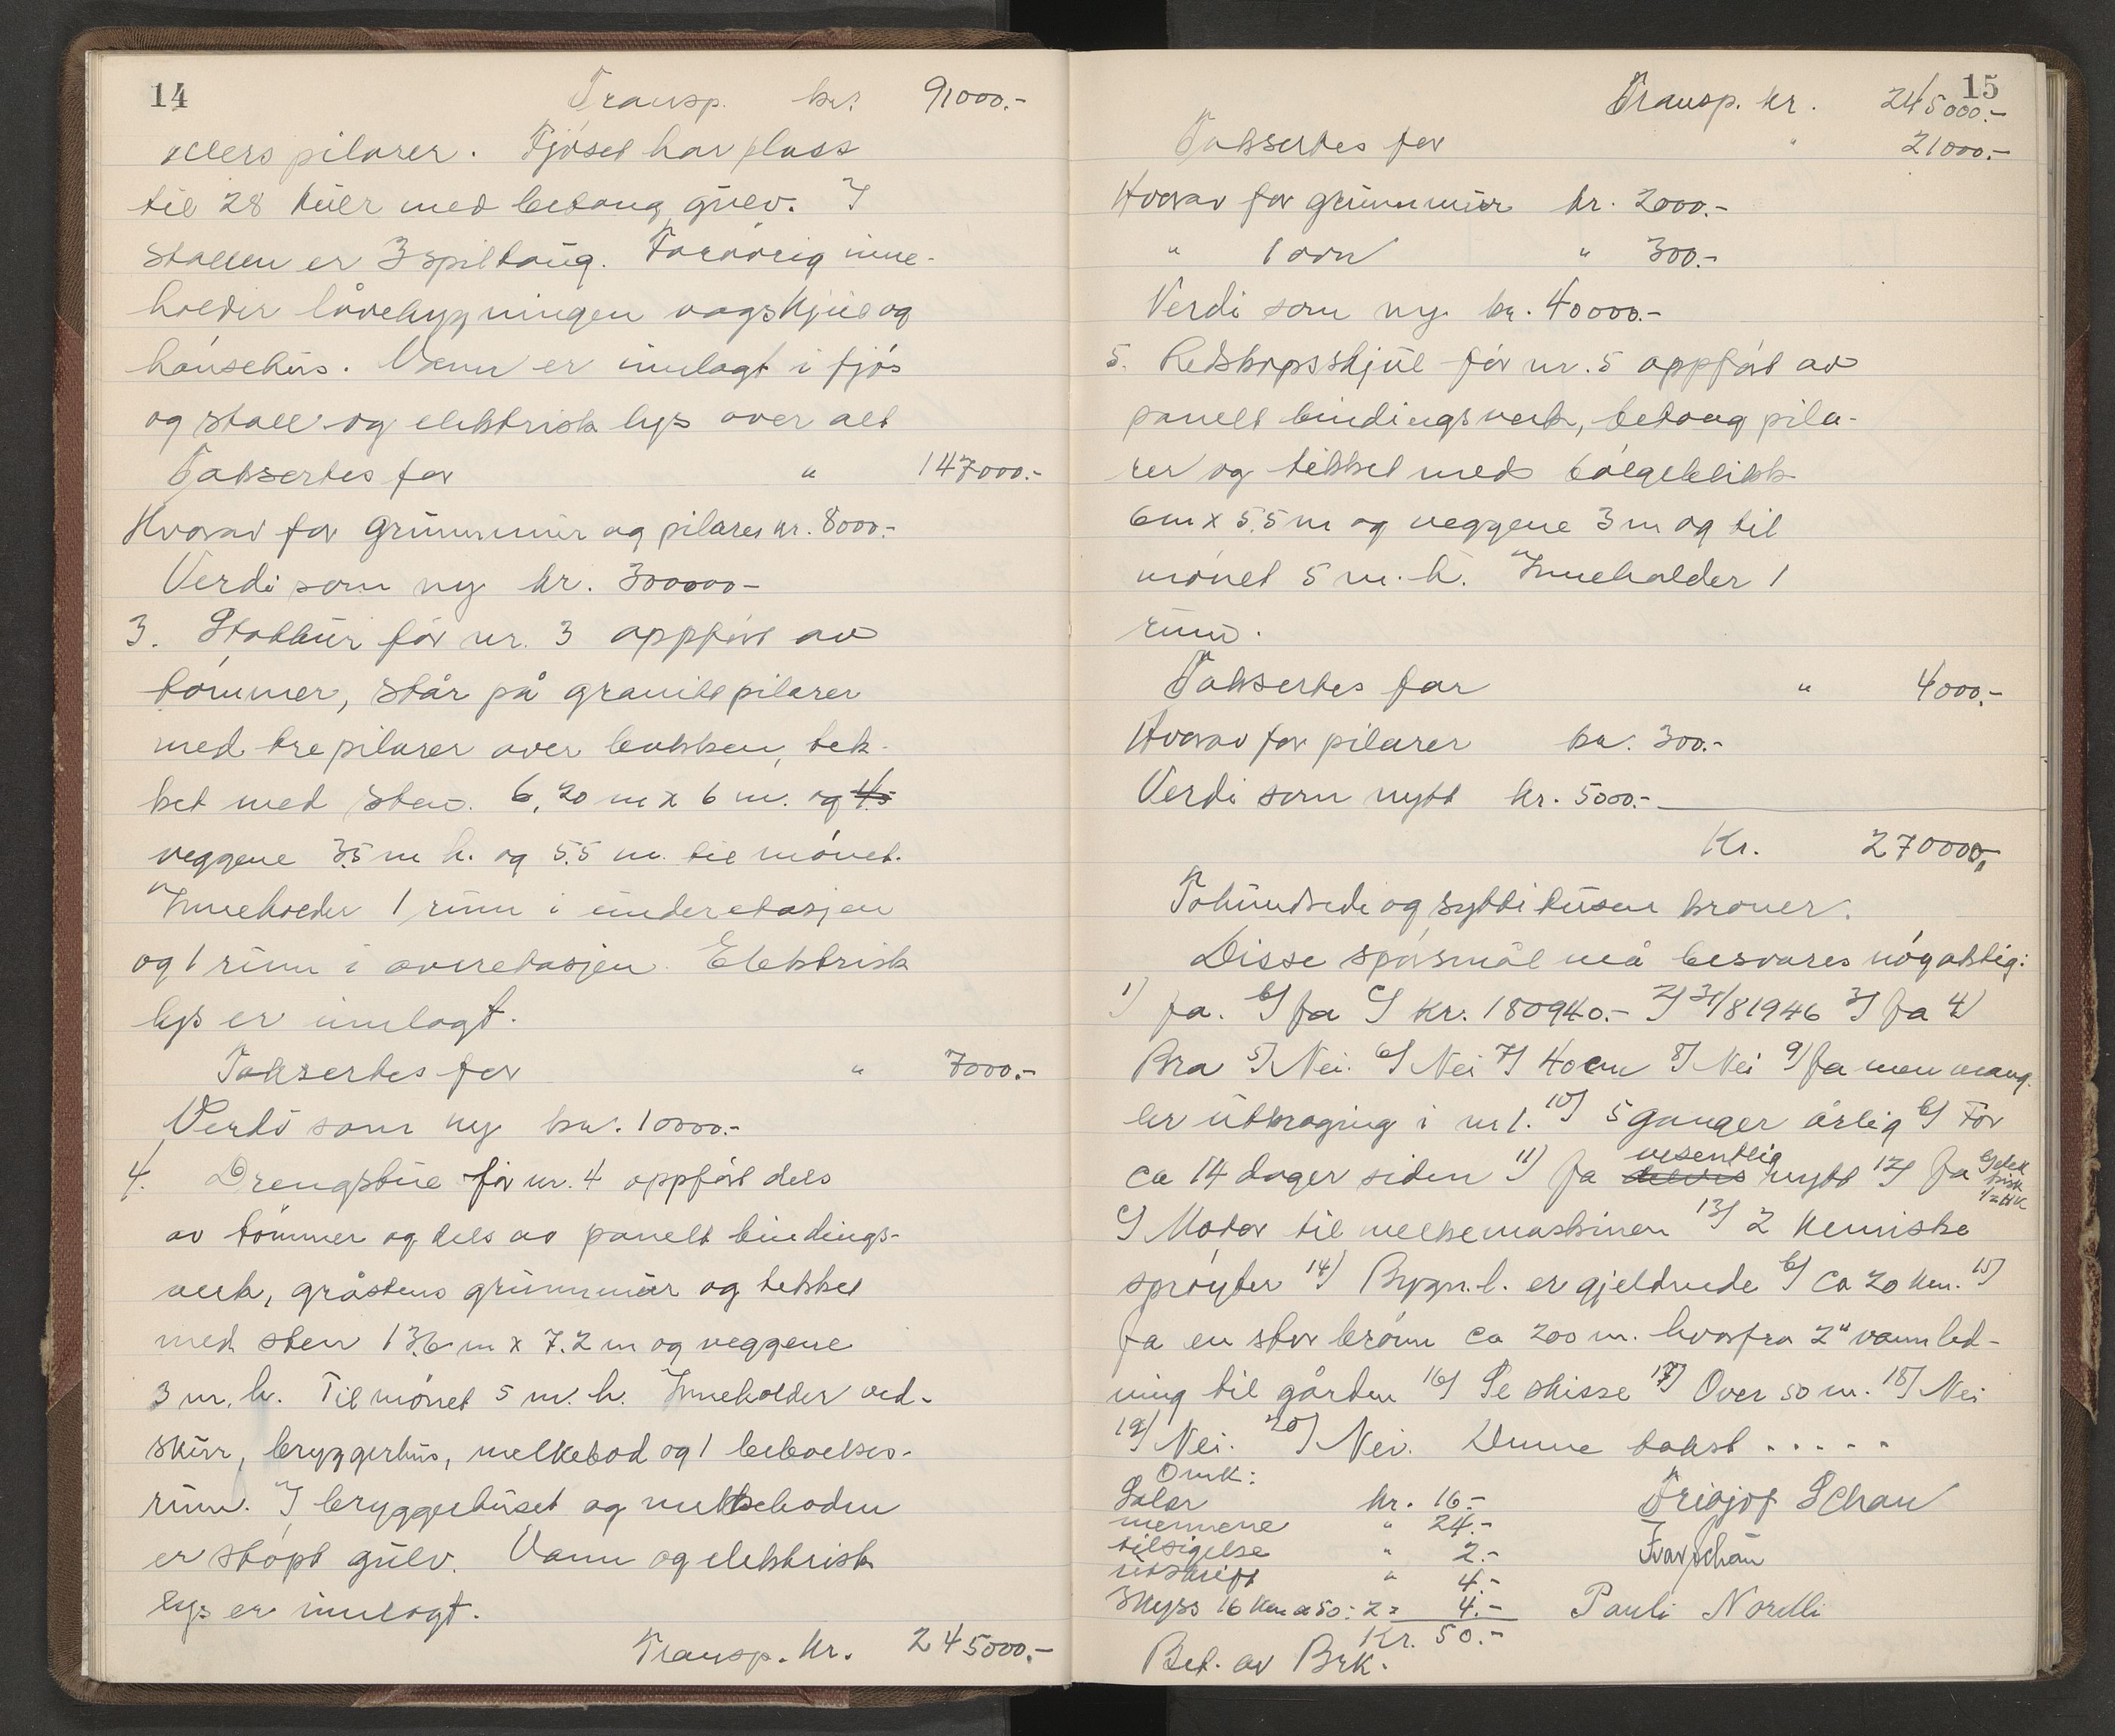 14
Transp. kr. 91000.-
ellers pilarer. Fjöset har plass
til 28 kuer med betong gulv. I
stallen er 3 spiltoug. Forövrig inne-
holder låvebygningen vogskjul og
hönsehus. Vann er innlagt i fjös
og stall og elektrisk lys over alt
Taksertes for " 147000.-
Hvorav for grunnmur og pilarer kr. 8000.-
Verdi som ny kr. 300000-
3. Stabbur för nr. 3 oppfört av
tömmer, står på granittpilarer
med trepilarer over bakken, tek-
ket med sten. 6,20 m x 6 m. og 4.5
veggene 3.5 m h. og 5.5 m. til mönet.
Inneholder 1 rum i underetasjen
og 1 rum i overetasjen. Elektrisk
lys er innlagt.
Taksertes for " 7000.-
Verdi som ny kr. 10000.-
4. Drengstue för nr. 4 oppfört dels
av tömmer og dels av panelt bindings-
verk, gråstens grunnmur og tekket
med sten 13.6 m x 7.2 m og veggene
3 m. h. Til mönet 5 m. h. Inneholder ved-
skur, bryggerhus, melkebod og 1 beboelses-
rum. I bryggerhuset og melkeboden
er stöpt gulv. Vann og elektrisk
lys er innlagt.
Transp. kr. 245000.-
15
Transp. kr. 245000.-
Taksertes for " 21000.-
Hvorav for grunnmur kr. 2000.-
" 1 ovn " 300.-
Verdi som ny kr. 40000.-
5. Redskapsskjul för nr. 5 oppfört av
panelt bindingsverk, betong pila-
rer og tekket med bölgeblikk
6m x 5.5 m og veggene 3 m og til
mönet 5 m. h. Inneholder 1
rum.
Taksertes for " 4000.-
Hvorav for pilarer kr. 300.-
Verdi som nytt kr. 5000.-
Kr. 270000,-
Tohundrede og sytti tusen kroner.
Disse spörsmål må besvares nöyaktig:
1) Ja. b) Ja c) Kr. 180940.- 2) 31/8 1946 3) Ja 4)
Bra 5) Nei. 6) Nei 7) 40 cm 8) Nei 9) Ja men mang-
ler utkraging i nr 1. 10) 5 ganger årlig b) For
ca 14 dager siden 11) Ja delvis vesentlig nytt 12) Ja b) elek
trisk
1/2 HK
c) Motor til melkemaskinen 13) 2 kemiske
spröyter 14) Bygn.l. er gjeldende b) Ca 20 km. 15)
Ja en stor brönn ca 200 m. hvorfra 2" vannled-
ning til gården 16) Se skisse 17) Over 50 m. 18) Nei
19) Nei. 20) Nei. Denne takst . . . . .
Omk:
Salær kr. 16.- Fridjof Schau
mennene " 24.-
tilsigelse " 2.- Ivar Schau
utskrift " 4.-
Skyss 16 km a 50: 2 = 4.- Pauli Norelli
Kr. 50.-
Bet. av Brk.